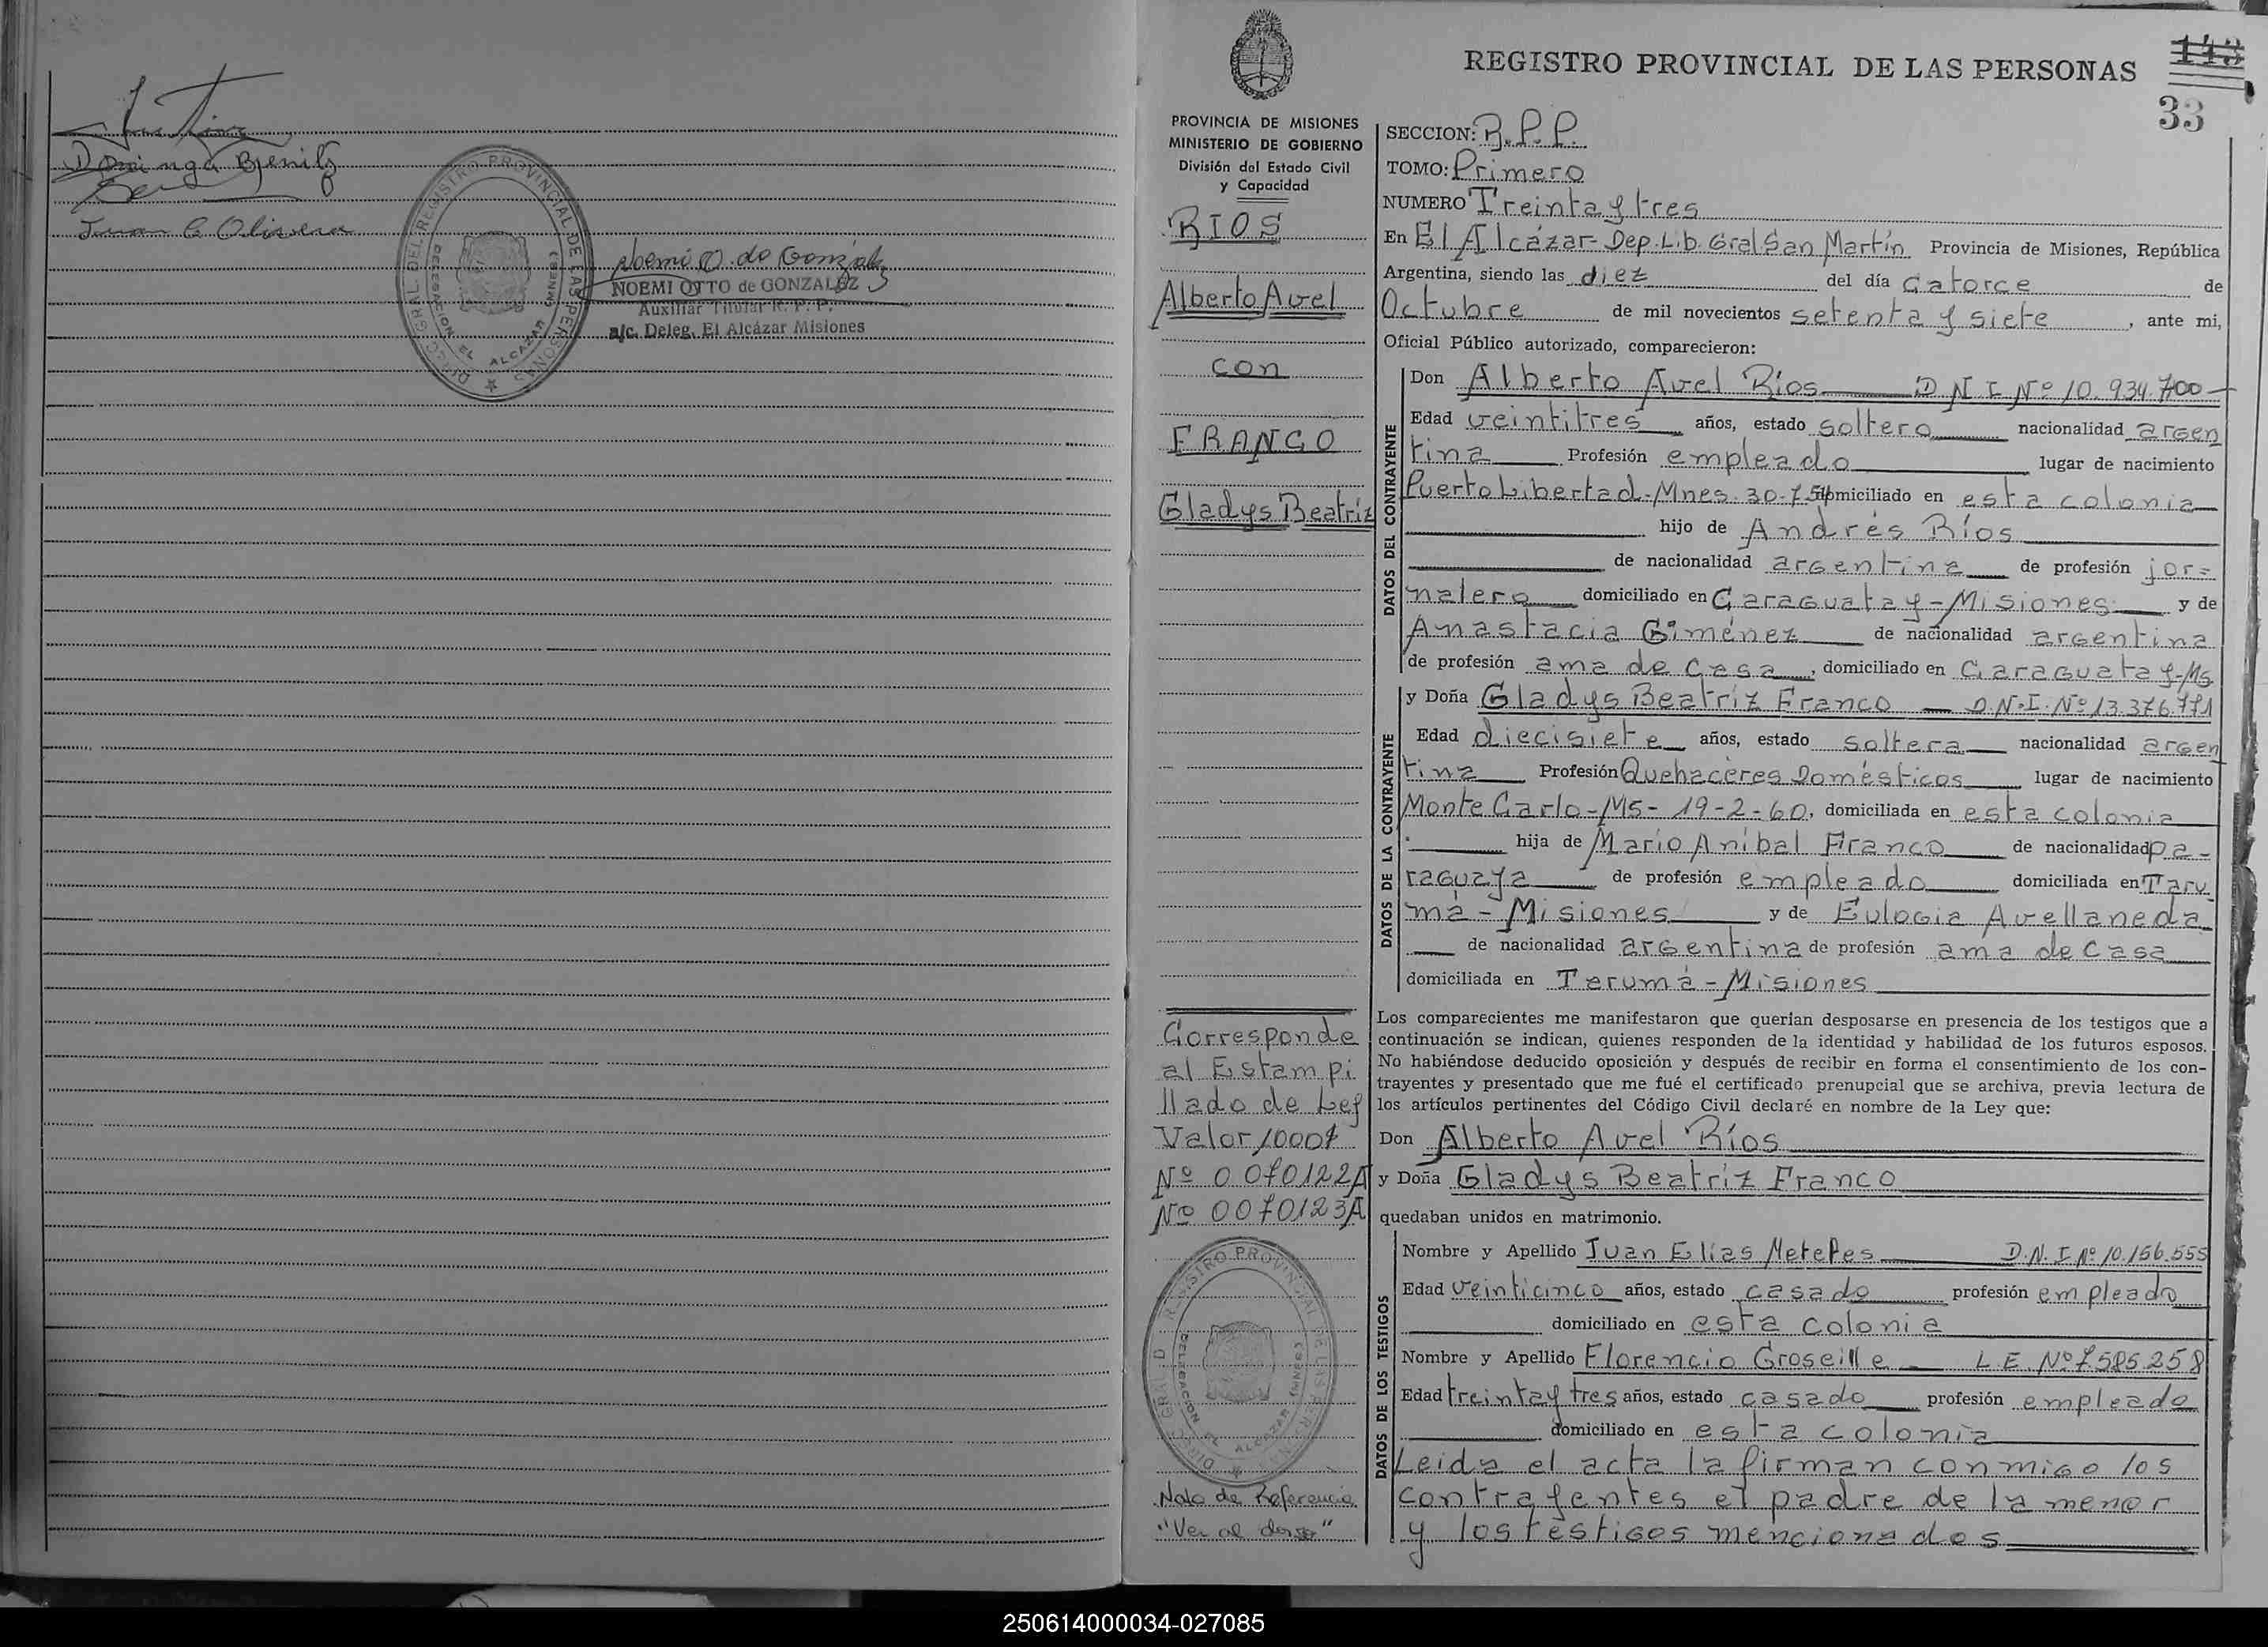 Dominga Benitez
Juan C Olivera
DIREC. GRAL. DEL REGISTRO PROVINCIAL DE LAS PERSONAS
DELEGACION EL ALCAZAR (MNES)
Noemi O. de Gonzalez
NOEMI OTTO de GONZALEZ
Auxiliar Titular R. P. P.
a/c. Deleg. El Alcázar Misiones
REGISTRO PROVINCIAL DE LAS PERSONAS
143
33
PROVINCIA DE MISIONES
MINISTERIO DE GOBIERNO
División del Estado Civil
y Capacidad
RIOS
Alberto Avel
con
FRANCO
Gladys Beatriz
Corresponde
al Estampi
llado de Ley
Valor 1000$
Nº 0070122A
Nº 0070123A
DIREC. GRAL. DEL REGISTRO PROVINCIAL DE LAS PERSONAS
DELEGACION EL ALCAZAR (MNES)
Nota de Referencia
"Ver al dorso"
SECCION: R.P.P.
TOMO: Primero
NUMERO Treinta y tres
En El Alcázar-Dep.Lib.Gral San Martín Provincia de Misiones, República
Argentina, siendo las diez del día catorce de
Octubre de mil novecientos setenta y siete, ante mi,
Oficial Público autorizado, comparecieron:
DATOS DEL CONTRAYENTE
Don Alberto Avel Ríos D.N.I Nº 10.934.700
Edad veintitres años, estado soltero nacionalidad argen
tina Profesión empleado lugar de nacimiento
Puerto Libertad-Mnes. 30-7-54 domiciliado en esta colonia
hijo de Andrés Ríos
de nacionalidad argentina de profesión jor=
nalero domiciliado en Caraguatay-Misiones y de
Anastacia Giménez de nacionalidad argentina
de profesión ama de casa, domiciliado en Caraguatay-Ms
DATOS DE LA CONTRAYENTE
y Doña Gladys Beatriz Franco D.N.I. Nº 13.376.771
Edad diecisiete años, estado soltera nacionalidad argen
tina Profesión Quehaceres Domésticos lugar de nacimiento
Monte Carlo-Ms- 19-2-60, domiciliada en esta colonia
hija de Mario Anibal Franco de nacionalidad pa-
raguaya de profesión empleado domiciliada en Taru
má-Misiones y de Eulogia Avellaneda
de nacionalidad argentina de profesión ama de casa
domiciliada en Tarumá-Misiones
Los comparecientes me manifestaron que querían desposarse en presencia de los testigos que a
continuación se indican, quienes responden de la identidad y habilidad de los futuros esposos.
No habiéndose deducido oposición y después de recibir en forma el consentimiento de los con-
trayentes y presentado que me fué el certificado prenupcial que se archiva, previa lectura de
los artículos pertinentes del Código Civil declaré en nombre de la Ley que:
Don Alberto Avel Ríos
y Doña Gladys Beatriz Franco
quedaban unidos en matrimonio.
DATOS DE LOS TESTIGOS
Nombre y Apellido Juan Elías D.N.I Nº 10.156.555
Edad veinticinco años, estado casado profesión empleado
domiciliado en esta colonia
Nombre y Apellido Florencio Groseille L.E. Nº 7.585.258
Edad treinta y tres años, estado casado profesión empleado
domiciliado en esta colonia
Leida el acta la firman conmigo los
contrayentes el padre de la menor
y los testigos mencionados
250614000034-027085